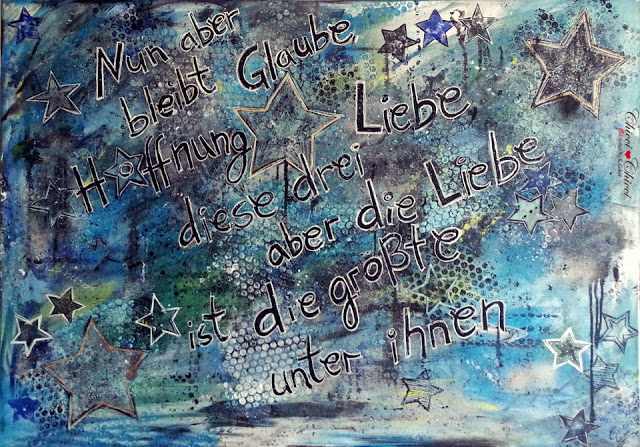 Nun aber
bleibt Glaube
Hoffnung Liebe
diese drei
aber die Liebe
ist die großte
unter ihnen